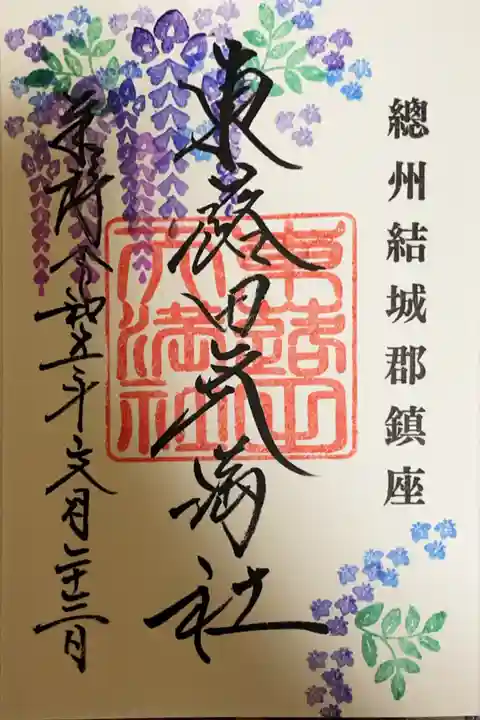 總州結城郡鎮座
東蕗田天満社
令和五年文月二十三日
東蕗田
天満社